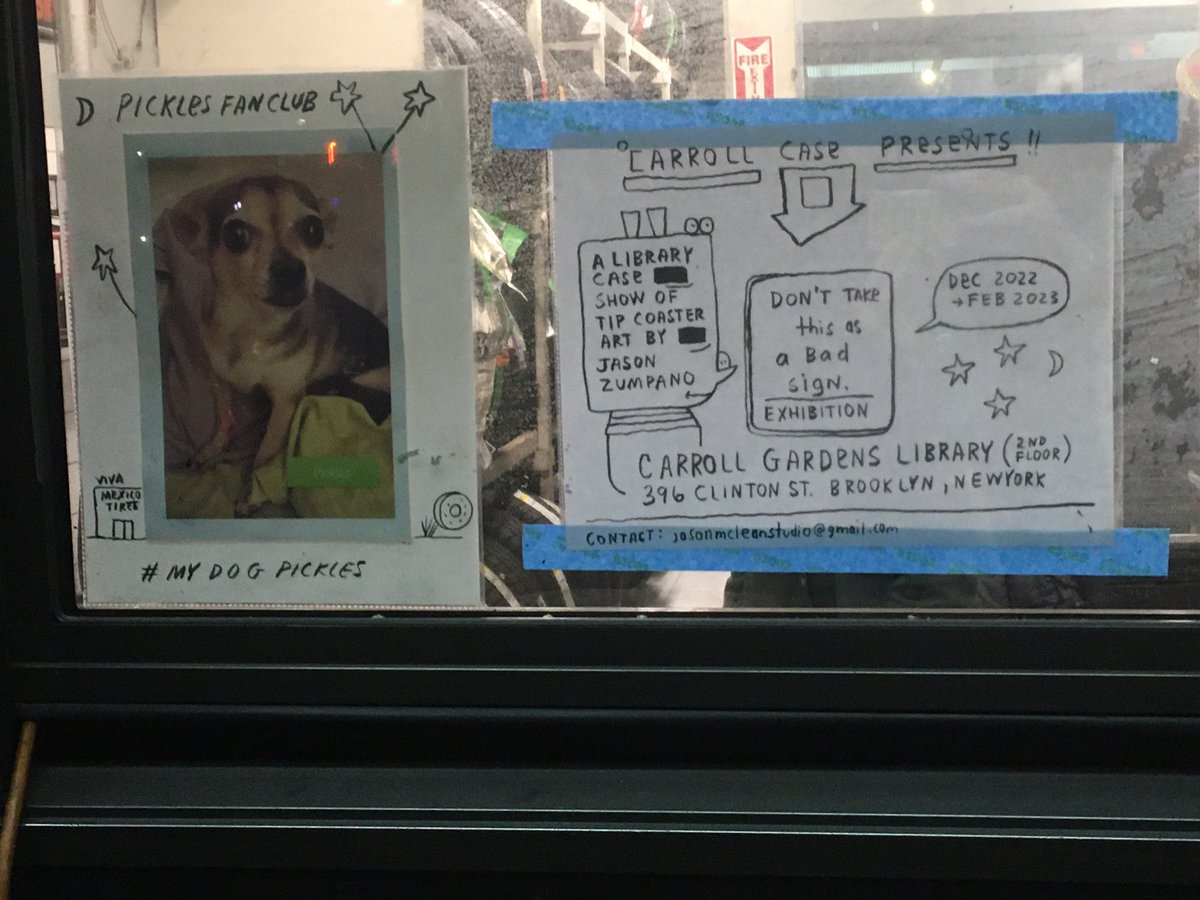 D PICKLES FANCLUB
VIVA
MEXICO
TIRES
# MY DOG PICKLES
FIRE
CARROLL CASE PRESENTS !!
A LIBRARY
CASE
SHOW OF
TIP COASTER
ART BY
JASON
ZUMPANO
DON'T TAKE
this as
a Bad
sign.
EXHIBITION
DEC 2022
→FEB 2023
CARROLL GARDENS LIBRARY (2ND FLOOR)
396 CLINTON ST. BROOKLYN, NEWYORK
CONTACT: jasonmcleanstudio@gmail.com